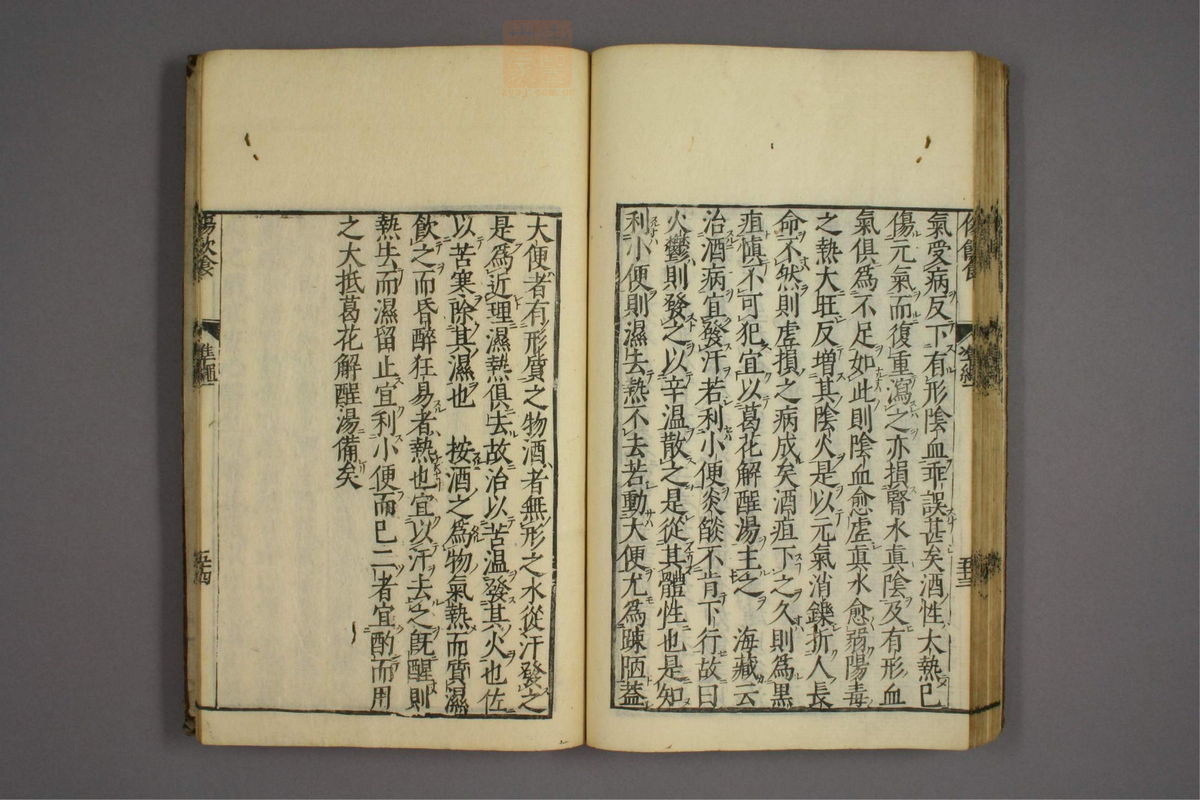 氣受病反下有形陰血乖誤甚矣酒性太熱已
傷元氣而復重瀉之亦損腎水真陰及有形血
氣俱爲不足如此則陰血愈虛真水愈弱陽毒
之熱大旺反增其陰火是以元氣消鑠折人長
命不然則虛損之病成矣酒疸下之久則爲黑
疸慎不可犯宜以葛花解酲湯主之　海藏云
治酒病宜發汗若利小便炎燄不肯下行故曰
火鬱則發之以辛温散之是從其體性也是知
利小便則濕去熱不去若動大便尤爲踈陋蓋
大便者有形質之物酒者無形之水從汗發之
是爲近理濕熱俱去故治以苦温發其火也佐
以苦寒除其濕也　按酒之爲物氣熱而質濕
飲之而昏醉狂易者熱也宜以汗去之旣醒則
熱去而濕留止宜利小便而已二者宜酌而用
之大抵葛花解酲湯備矣
傷飲食
準繩
五十四